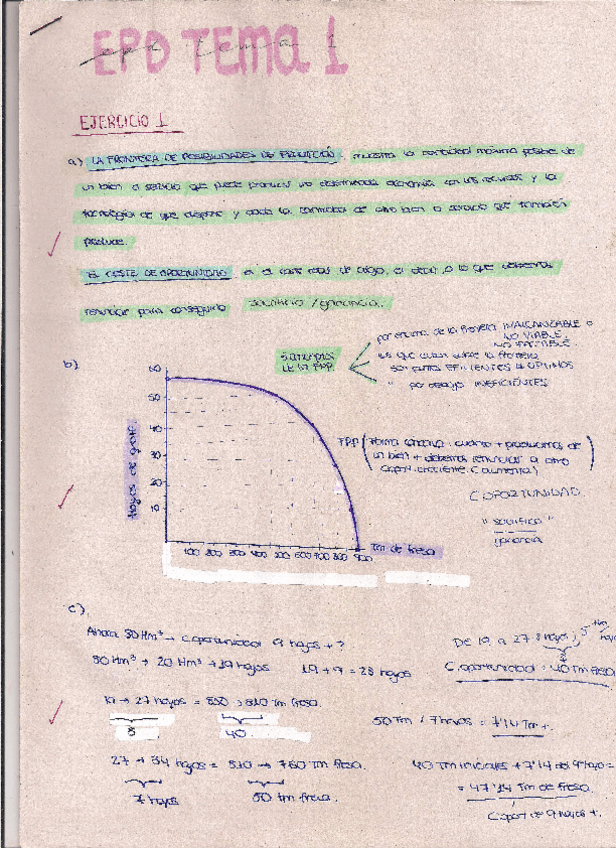 EPD TEMA 1
epd tema 1
EJERCICIO 1
a) LA FRONTERA DE POSIBILIDADES DE PRODUCCIÓN, muestra la cantidad máxima posible de
un bien o servicio que puede producir una determinada economía con los recursos y la
tecnología de que dispone y dada la cantidad de otro bien o servicio que también
produce.
EL COSTE DE OPORTUNIDAD es el coste real de algo, es decir, a lo que debemos
renunciar para conseguirlo sacrificio / ganancia.
b)
por encima de la frontera INALCANZABLE o
NO VIABLE
NO FACTIBLE
los que están sobre la frontera
son puntos EFICIENTES u OPTIMOS
" por debajo INEFICIENTES
60
50
40
30
20
10
Hoyos de golf
100 200 300 400 500 600 700 800 900
Tm de fresa
FPP (Forma cóncava: cuanto + producimos de
un bien + debemos renunciar a otro
Coport. creciente (aumenta)
C OPORTUNIDAD
"sacrificio"
ganancia
c)
Ahora 30 Hm³ → C.oportunidad 9 hoyos + ?
30 Hm³ → 20 Hm³ → 19 hoyos 19 + 9 = 28 hoyos
De 19 a 27 8 hoyos,
C.oportunidad = 40 Tm fresa
19 → 27 hoyos = 850 → 810 Tm fresa.
8 40
50 Tm / 7 hoyos = 7'14 Tm +.
27 → 34 hoyos = 810 → 760 Tm fresa.
7 hoyos 50 Tm fresa.
40 Tm iniciales + 7'14 del 9º hoyo =
= 47'14 Tm de fresa.
C oport de 9 hoyos +.